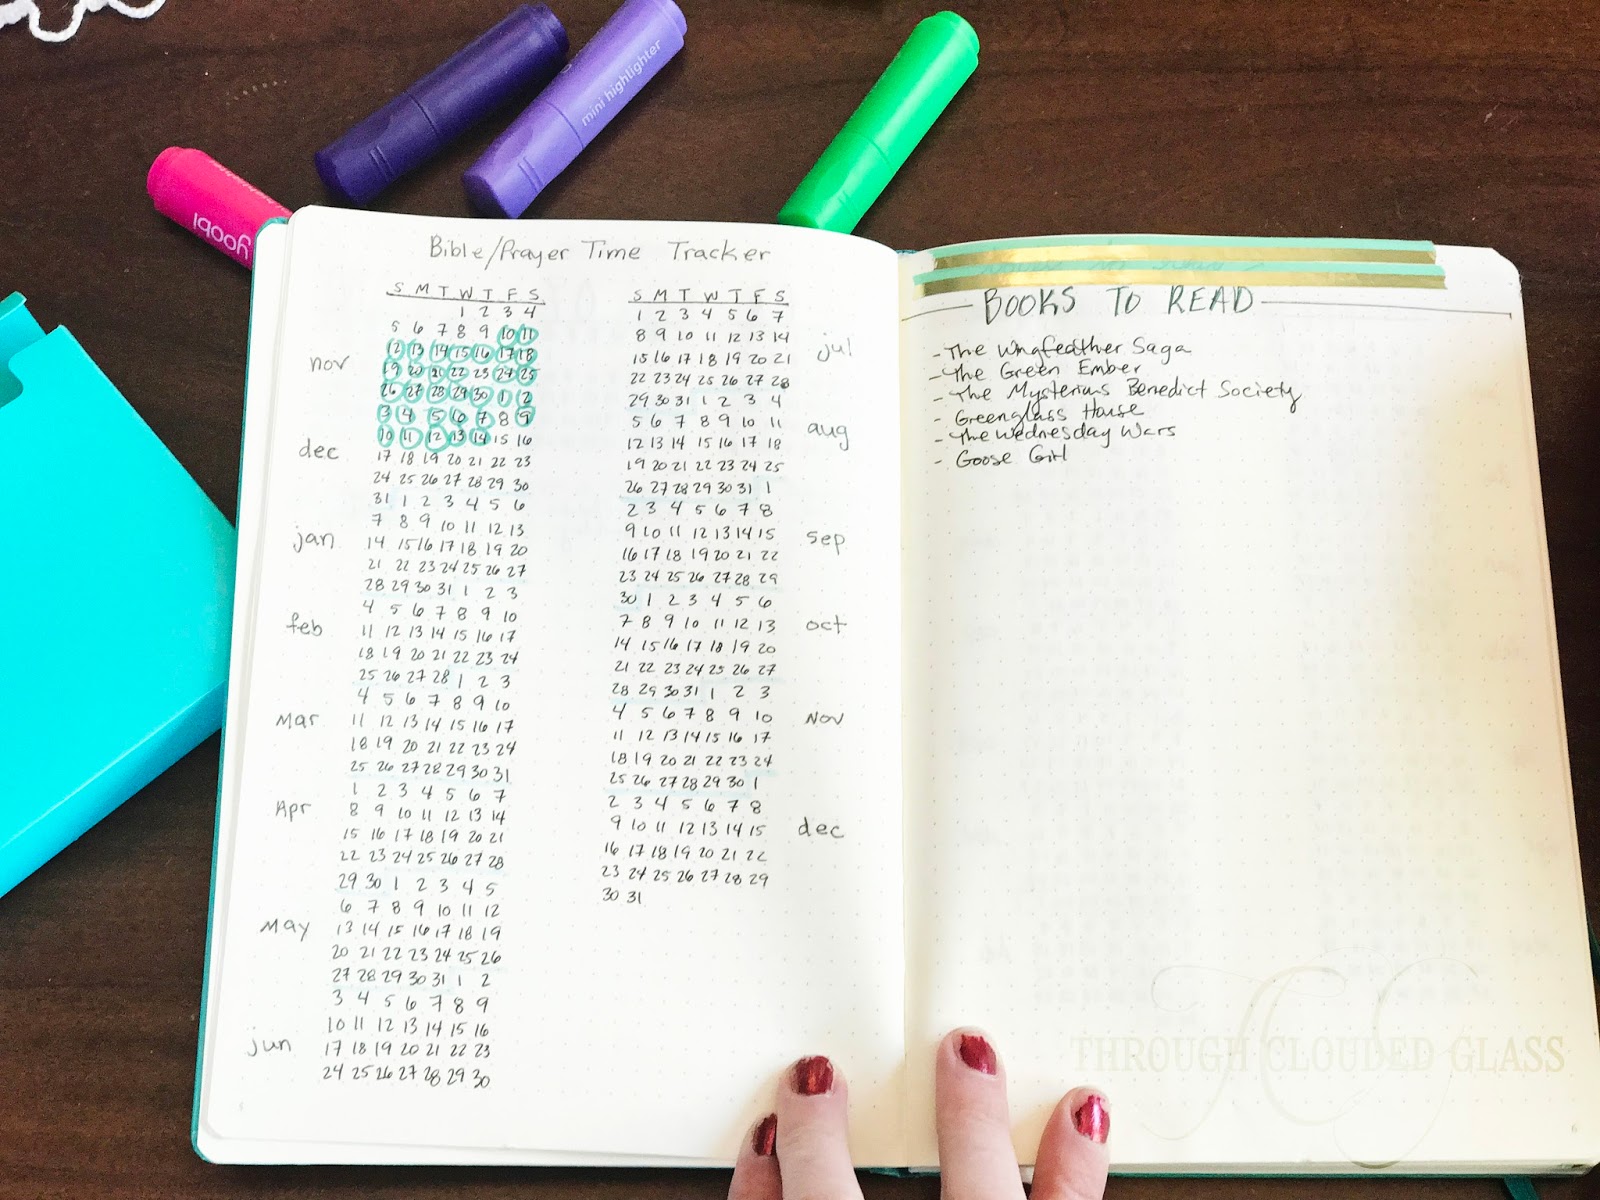 mini highlighter
yoobi
Bible/Prayer Time Tracker
S M T W T F S
1 2 3 4
5 6 7 8 9 10 11
12 13 14 15 16 17 18
nov
19 20 21 22 23 24 25
26 27 28 29 30 1 2
3 4 5 6 7 8 9
10 11 12 13 14 15 16
dec
17 18 19 20 21 22 23
24 25 26 27 28 29 30
31 1 2 3 4 5 6
7 8 9 10 11 12 13
jan
14 15 16 17 18 19 20
21 22 23 24 25 26 27
28 29 30 31 1 2 3
4 5 6 7 8 9 10
feb
11 12 13 14 15 16 17
18 19 20 21 22 23 24
25 26 27 28 1 2 3
4 5 6 7 8 9 10
Mar
11 12 13 14 15 16 17
18 19 20 21 22 23 24
25 26 27 28 29 30 31
1 2 3 4 5 6 7
Apr
8 9 10 11 12 13 14
15 16 17 18 19 20 21
22 23 24 25 26 27 28
29 30 1 2 3 4 5
6 7 8 9 10 11 12
May
13 14 15 16 17 18 19
20 21 22 23 24 25 26
27 28 29 30 31 1 2
3 4 5 6 7 8 9
10 11 12 13 14 15 16
jun
17 18 19 20 21 22 23
24 25 26 27 28 29 30
S M T W T F S
1 2 3 4 5 6 7
8 9 10 11 12 13 14
jul
15 16 17 18 19 20 21
22 23 24 25 26 27 28
29 30 31 1 2 3 4
5 6 7 8 9 10 11
aug
12 13 14 15 16 17 18
19 20 21 22 23 24 25
26 27 28 29 30 31 1
2 3 4 5 6 7 8
9 10 11 12 13 14 15
sep
16 17 18 19 20 21 22
23 24 25 26 27 28 29
30 1 2 3 4 5 6
7 8 9 10 11 12 13
oct
14 15 16 17 18 19 20
21 22 23 24 25 26 27
28 29 30 31 1 2 3
4 5 6 7 8 9 10
Nov
11 12 13 14 15 16 17
18 19 20 21 22 23 24
25 26 27 28 29 30 1
2 3 4 5 6 7 8
9 10 11 12 13 14 15
dec
16 17 18 19 20 21 22
23 24 25 26 27 28 29
30 31
5
BOOKS TO READ
- The Wingfeather Saga
- The Green Ember
- The Mysterious Benedict Society
- Greenglass House
- The Wednesday Wars
- Goose Girl
THROUGH CLOUDED GLASS
6